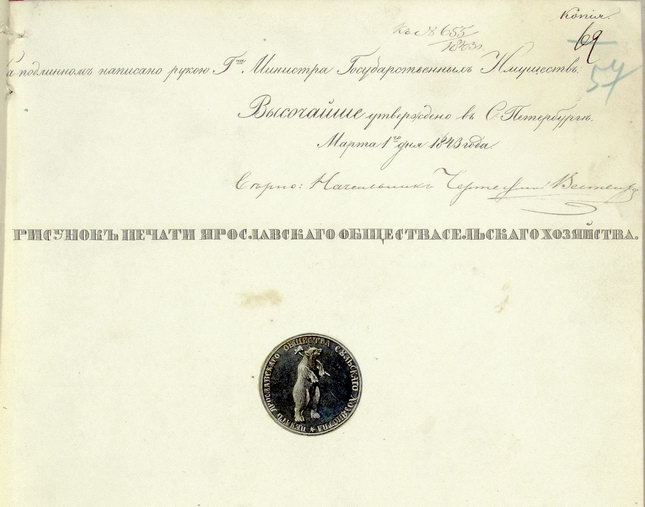 Копія.
къ № 655/1843
69
54
На подлинномъ написано рукою Гна Министра Государственныхъ Имуществъ.
Высочайше утверждено въ С. Петербургѣ.
Марта 1го дня 1843 года.
Вѣрно: Начальникъ
РИСУНОКЪ ПЕЧАТИ ЯРОСЛАВСКАГО ОБЩЕСТВА СЕЛЬСКАГО ХОЗЯЙСТВА.
ПЕЧАТЬ ЯРОСЛАВСКАГО ОБЩЕСТВА СЕЛЬСКАГО ХОЗЯЙСТВА